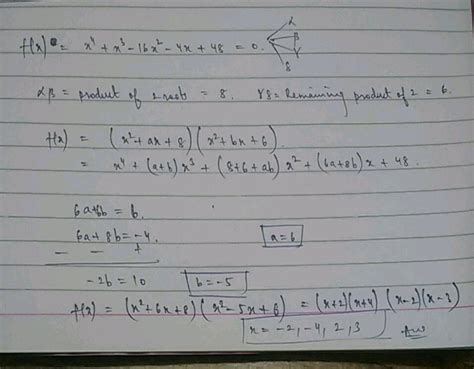 f(x) = x⁴ + x³ - 16x² - 4x + 48 = 0. α β γ δ
αβ = product of 2 roots = 8. γδ = Remaining product of 2 = 6.
f(x) = (x² + ax + 8) (x² + bx + 6).
= x⁴ + (a+b) x³ + (8+6+ab) x² + (6a+8b) x + 48.
6a+6b = 6.
6a + 8b = -4. a=6
- - +
-2b = 10 b = -5
f(x) = (x² + 6x + 8) (x² - 5x + 6) = (x+2)(x+4) (x-2)(x-3)
x = -2, -4, 2, 3 Ans